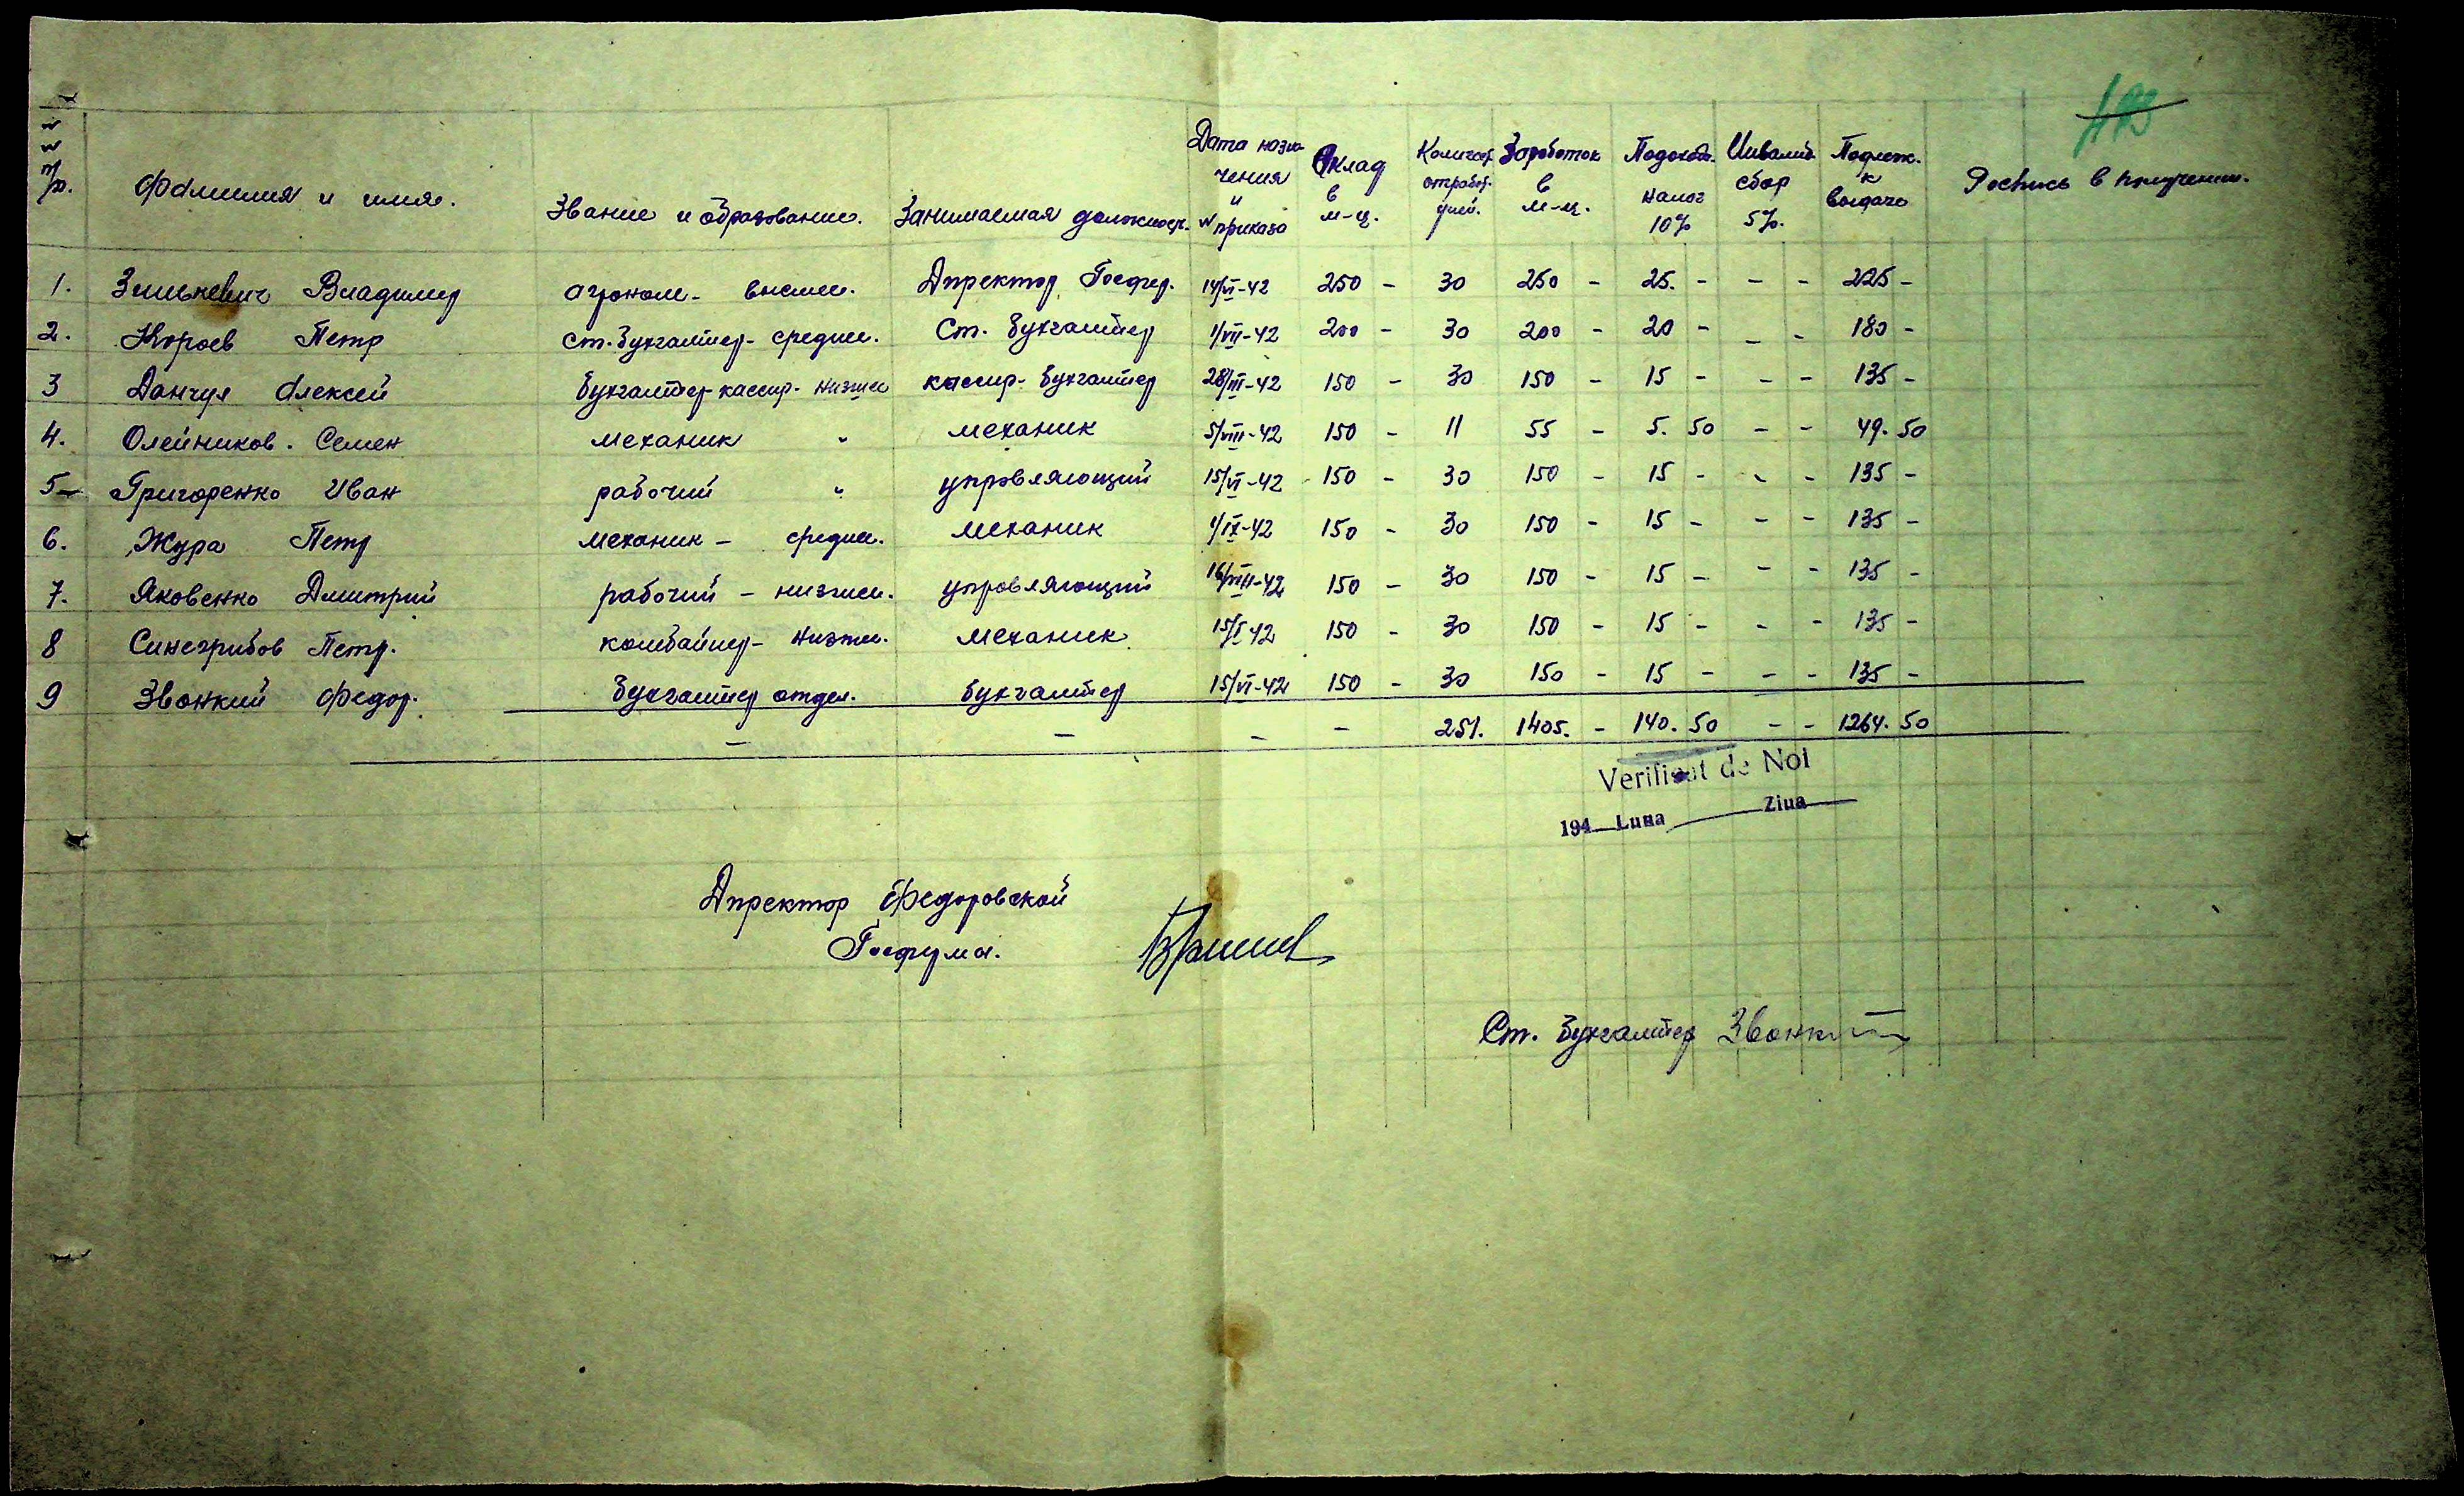 №№ п/п. Фамилия и имя. Звание и образование. Занимаемая должность. Дата назначения и № приказа Оклад в м-ц. Количест. отработ. дней. Заработок в м-ц. Подоходн. налог 10% Инвалид. сбор 5%. Подлеж. к выдаче Роспись в получении.
1. Зинькевич Владимир агроном - высшее. Директор Госфер. 14/VI-42 250 - 30 250 - 25. - - - 225 -
2. Петр ст. бухгалтер - средне. Ст. бухгалтер 1/VII-42 200 - 30 200 - 20 - - - 180 -
3 Данчул Алексей бухгалтер-кассир - низшее кассир-бухгалтер 28/III-42 150 - 30 150 - 15 - - - 135 -
4. Олейников. Семен механик " механик 5/VIII-42 150 - 11 55 - 5. 50 - - 49. 50
5- Григоренко Иван рабочий " управляющий 15/VI-42 150 - 30 150 - 15 - - - 135 -
6. Жура Петр механик - средне. механик 1/IX-42 150 - 30 150 - 15 - - - 135 -
7. Яковенко Дмитрий рабочий - низшее. управляющий 16/VIII-42 150 - 30 150 - 15 - - - 135 -
8 Синегрибов Петр. комбайнер - низше. механик 15/I 42 150 - 30 150 - 15 - - - 135 -
9 Звонкий Федор. бухгалтер отдел. бухгалтер 15/VI-42 150 - 30 150 - 15 - - - 135 -
- - - - 251. 1405. - 140. 50 - - 1264. 50
Verificat de Noi
194 Luna Ziua
Директор Федоровской
Госфермы.
Ст. бухгалтер Звонкий